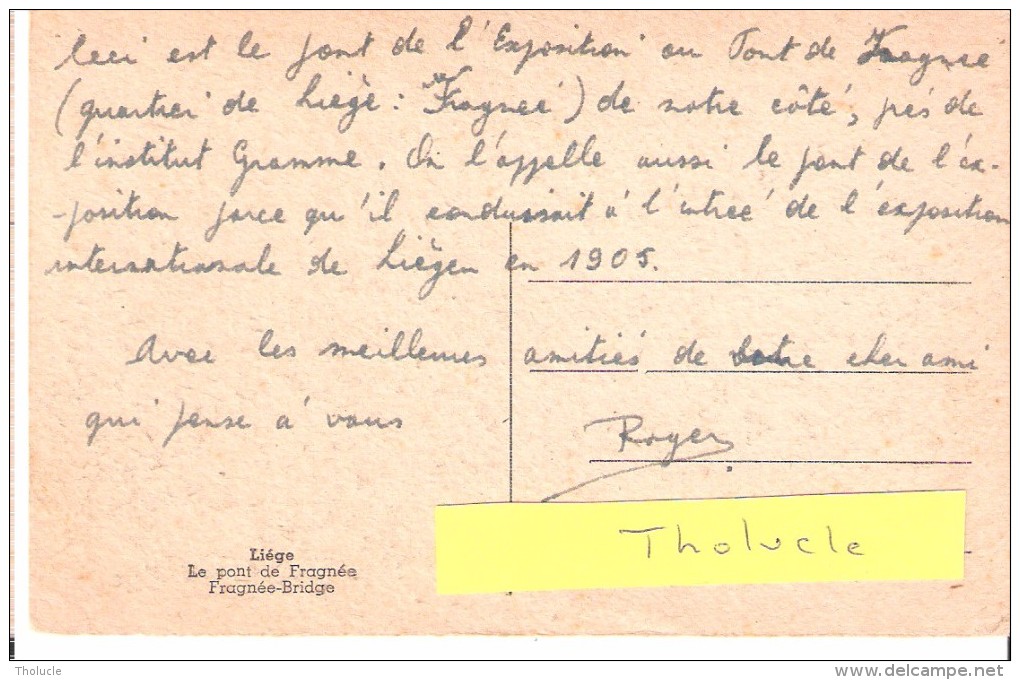 Ceci est le pont de l'Exposition ou Pont de Fragnée
(quartier de Liège : Fragnée) de notre côté, près de
l'institut Gramme. On l'appelle aussi le pont de l'ex-
-position parce qu'il conduisait à l'entrée de l'exposition
internationale de Liège en 1905.
Avec les meilleures amitiés de votre cher ami
qui pense à vous
Roger
Tholucle
Liége
Le pont de Fragnée
Fragnée-Bridge
Tholucle
www.delcampe.net